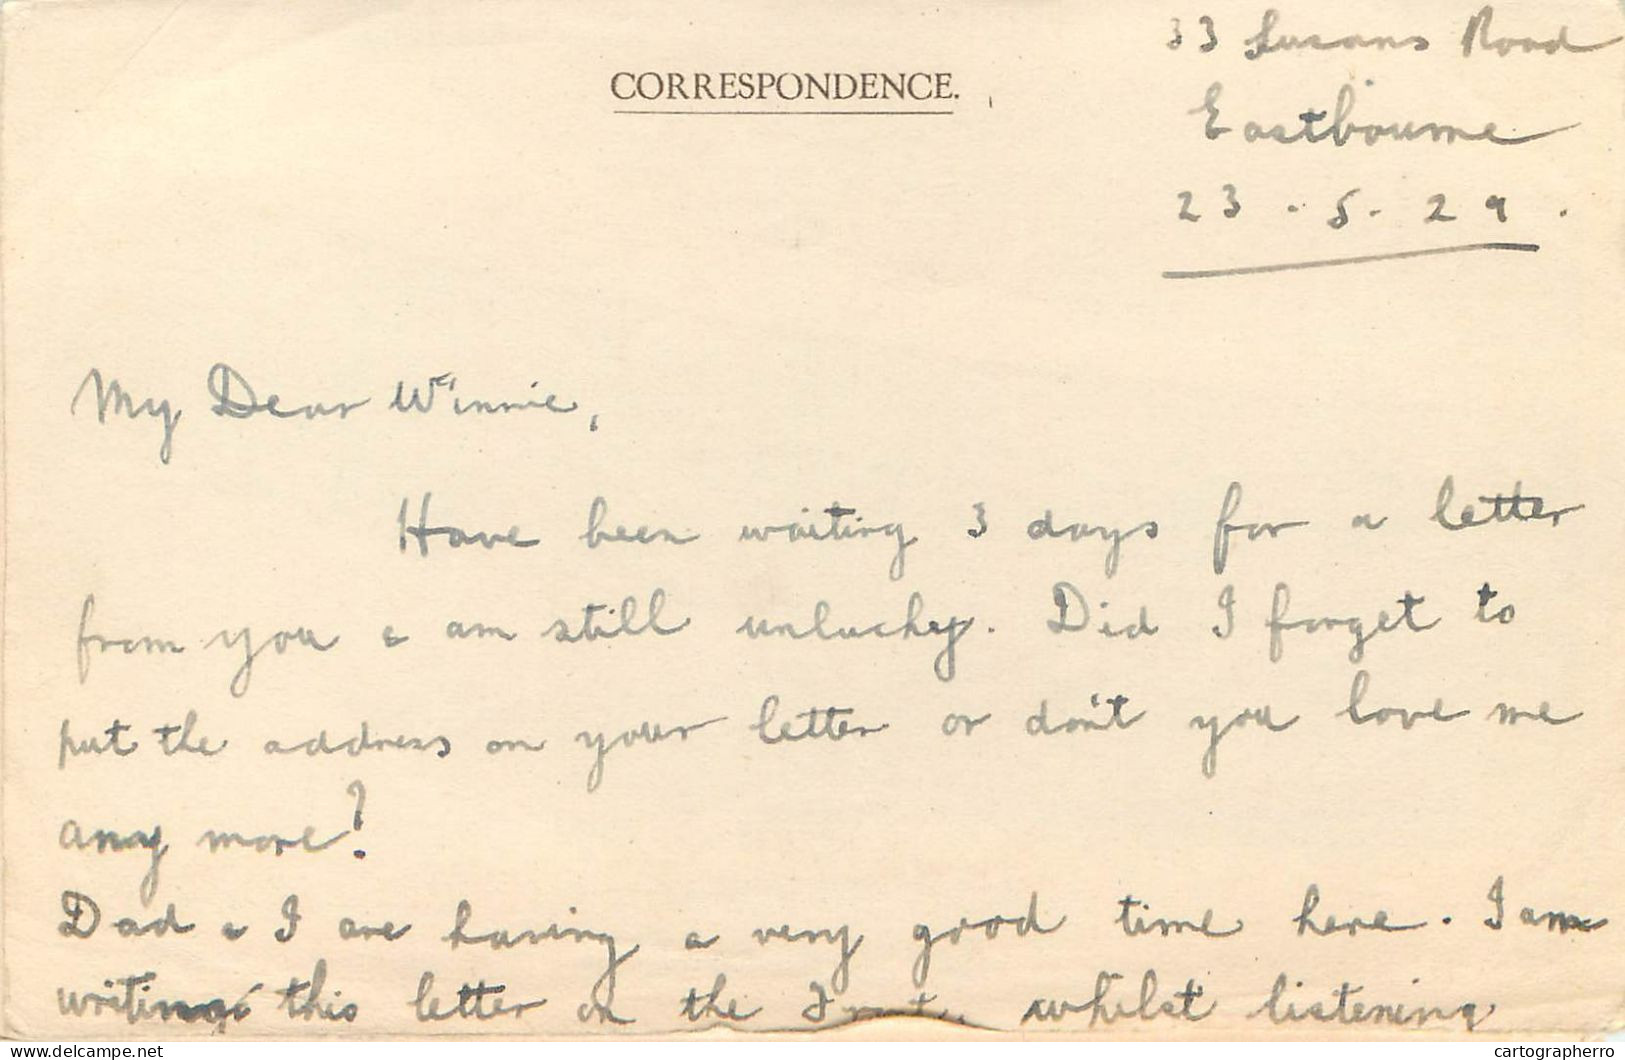 33 Susans Road
CORRESPONDENCE.
Eastbourne
23.5.29.
My Dear Winnie,
Have been waiting 3 days for a letter
from you & am still unlucky. Did I forget to
put the address on your letter or don't you love me
any more?
Dad & I are having a very good time here. I am
writing this letter on the Front, whilst listening
delcampe.net
cartographerro